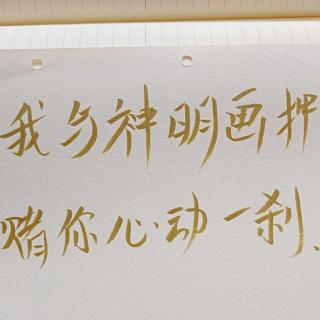 我与神明画押
赌你心动一刹、